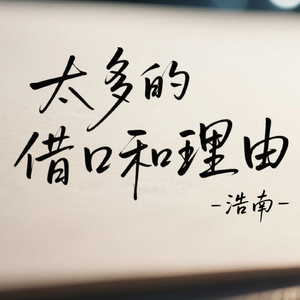 太多的
借口和理由
-浩南-